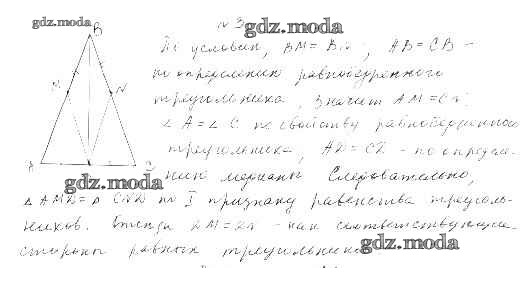 gdz.moda
N 3
gdz.moda
B
По условию, BM = BN; AB = CB –
по определению равнобедренного
M N
треугольника, значит AM = CN;
∠A = ∠C по свойству равнобедренного
треугольника, AD = CD - по опреде-
A
gdz.moda
лению медианы. Следовательно,
△ AMD = △ CND по I признаку равенства треуголь-
ников. Отсюда DM = DN - как соответствующие
стороны равных треугольников.
gdz.moda